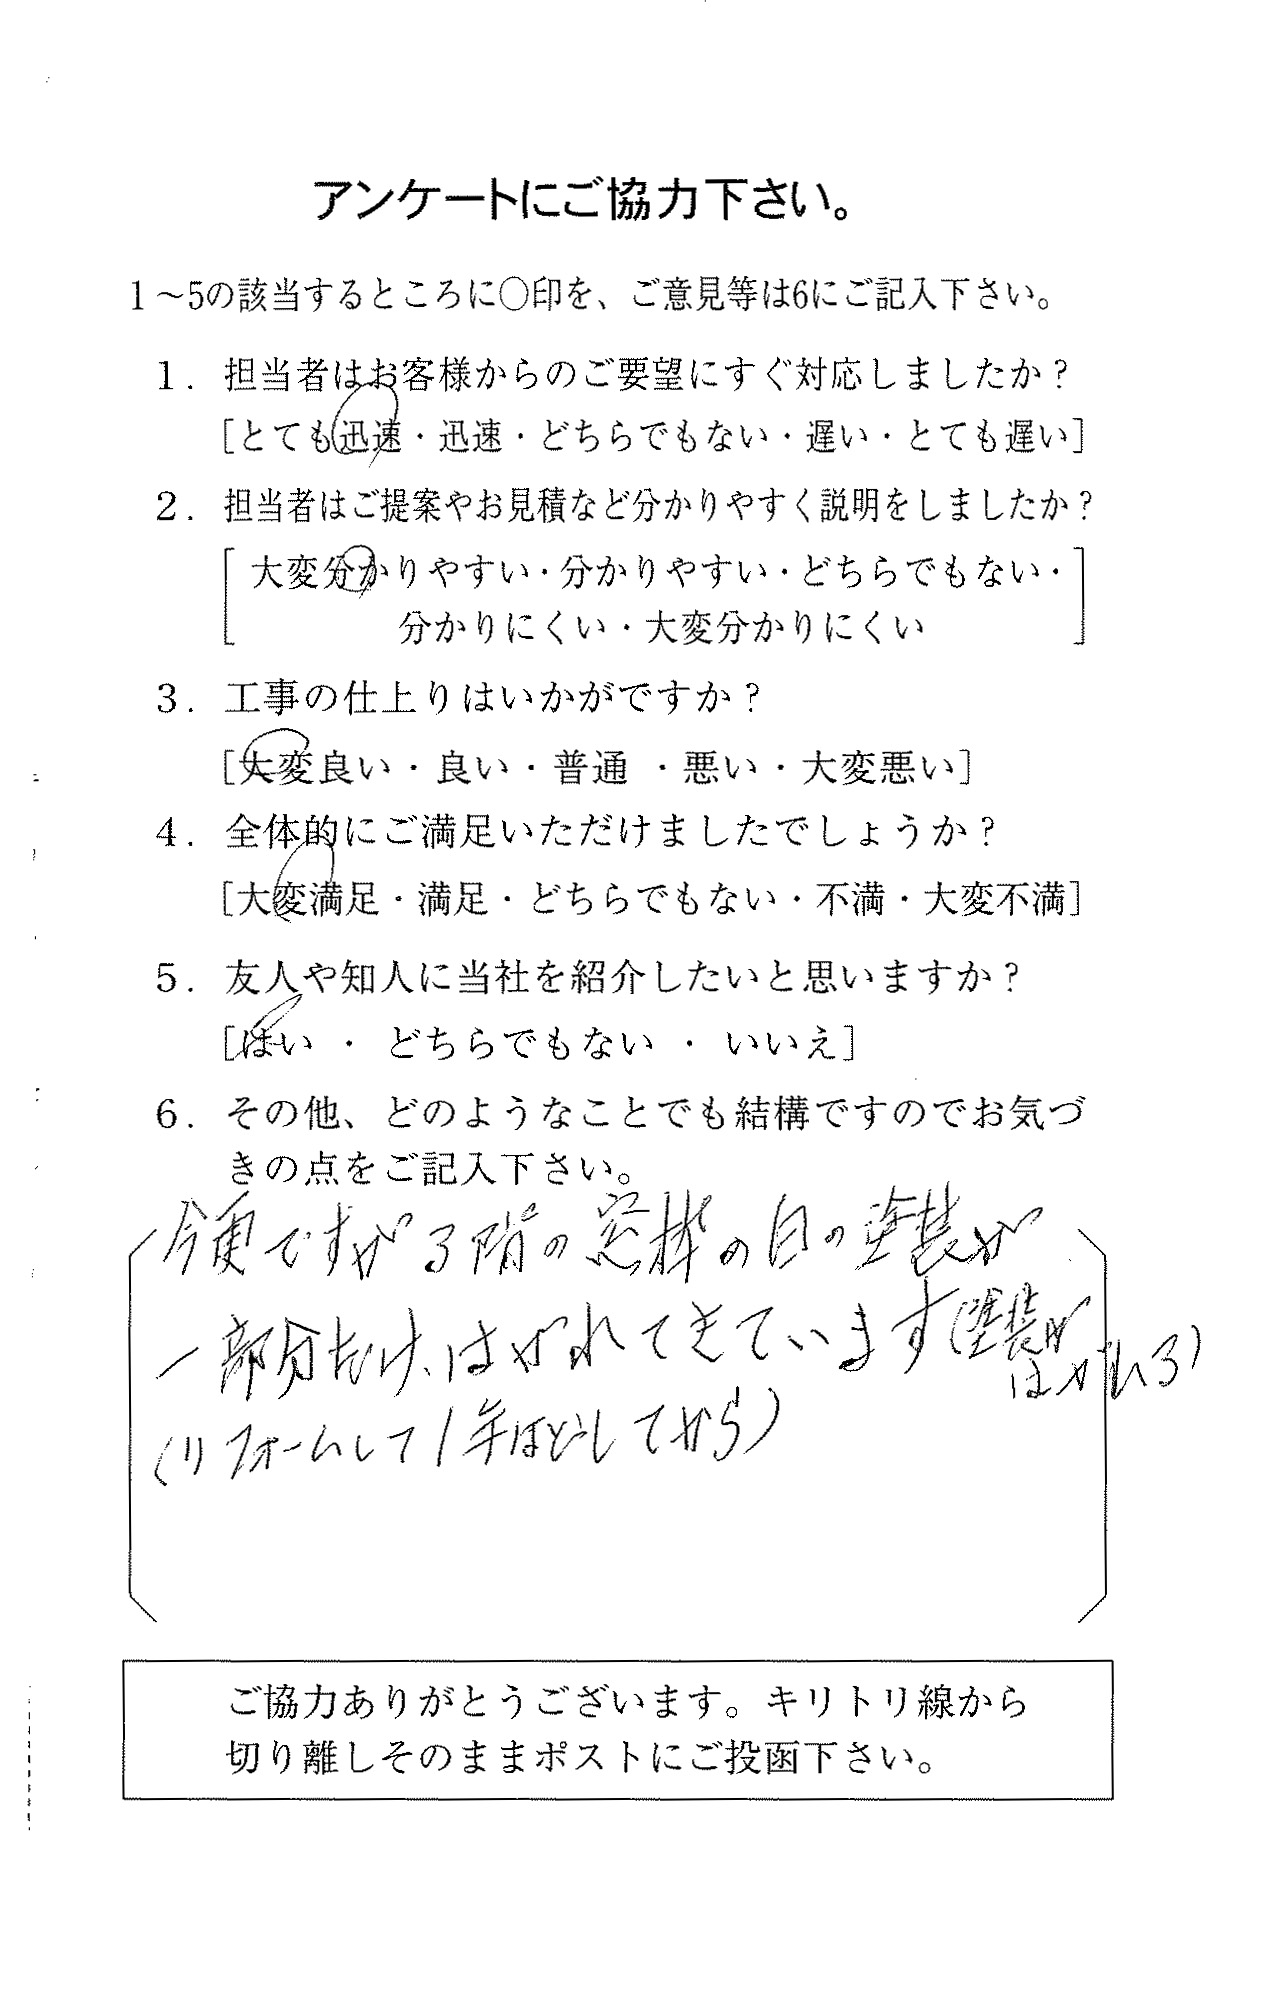 アンケートにご協力下さい。
1～5の該当するところに○印を、ご意見等は6にご記入下さい。
1. 担当者はお客様からのご要望にすぐ対応しましたか？
[とても迅速・迅速・どちらでもない・遅い・とても遅い]
2. 担当者はご提案やお見積など分かりやすく説明をしましたか？
[大変分かりやすい・分かりやすい・どちらでもない・
分かりにくい・大変分かりにくい]
3. 工事の仕上りはいかがですか？
[大変良い・良い・普通 ・悪い・大変悪い]
4. 全体的にご満足いただけましたでしょうか？
[大変満足・満足・どちらでもない・不満・大変不満]
5. 友人や知人に当社を紹介したいと思いますか？
[はい ・ どちらでもない ・ いいえ]
6. その他、どのようなことでも結構ですのでお気づ
きの点をご記入下さい。
今更ですが3階の窓枠の白の塗装が
一部分だけ、はがれてきています(塗装が
はがれる)
(リフォームして1年ほどしてから)
ご協力ありがとうございます。キリトリ線から
切り離しそのままポストにご投函下さい。